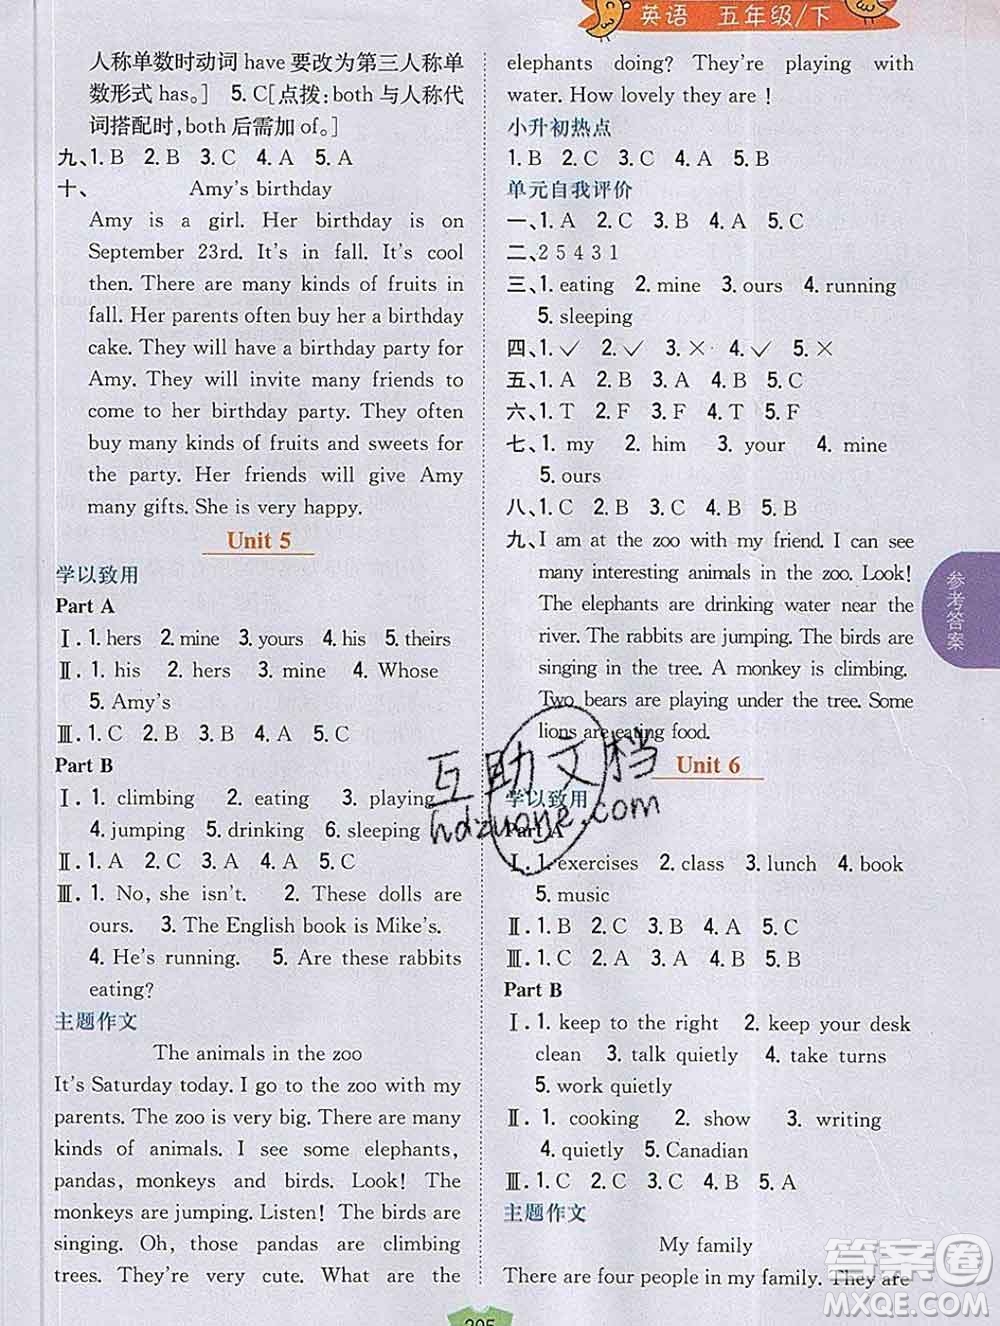 英语 五年级/下
人称单数时动词 have 要改为第三人称单
数形式 has。] 5. C[点拨: both 与人称代
词搭配时, both 后需加 of。]
九、1. B 2. B 3. C 4. A 5. A
十、 Amy's birthday
Amy is a girl. Her birthday is on
September 23rd. It's in fall. It's cool
then. There are many kinds of fruits in
fall. Her parents often buy her a birthday
cake. They will have a birthday party for
Amy. They will invite many friends to
come to her birthday party. They often
buy many kinds of fruits and sweets for
the party. Her friends will give Amy
many gifts. She is very happy.
Unit 5
学以致用
Part A
Ⅰ. 1. hers 2. mine 3. yours 4. his 5. theirs
Ⅱ. 1. his 2. hers 3. mine 4. Whose
5. Amy's
Ⅲ. 1. C 2. B 3. A 4. A 5. C
Part B
Ⅰ. 1. climbing 2. eating 3. playing
4. jumping 5. drinking 6. sleeping
Ⅱ. 1. A 2. C 3. A 4. A 5. C
Ⅲ. 1. No, she isn't. 2. These dolls are
ours. 3. The English book is Mike's.
4. He's running. 5. Are these rabbits
eating?
主题作文
The animals in the zoo
It's Saturday today. I go to the zoo with my
parents. The zoo is very big. There are many
kinds of animals. I see some elephants,
pandas, monkeys and birds. Look! The
monkeys are jumping. Listen! The birds are
singing. Oh, those pandas are climbing
trees. They're very cute. What are the
elephants doing? They're playing with
water. How lovely they are !
小升初热点
1. B 2. B 3. C 4. A 5. B
单元自我评价
一、1. A 2. C 3. B 4. A 5. C
二、2 5 4 3 1
三、1. eating 2. mine 3. ours 4. running
5. sleeping
四、1. ✓ 2. ✓ 3. × 4. ✓ 5. ×
五、1. A 2. B 3. C 4. B 5. A
六、1. T 2. F 3. F 4. T 5. F
七、1. my 2. him 3. your 4. mine
5. ours
八、1. C 2. B 3. A 4. A 5. B
九、I am at the zoo with my friend. I can see
many interesting animals in the zoo. Look!
The elephants are drinking water near the
river. The rabbits are jumping. The birds are
singing in the tree. A monkey is climbing.
Two bears are playing under the tree. Some
lions are eating food.
Unit 6
学以致用
Part A
Ⅰ. 1. exercises 2. class 3. lunch 4. book
5. music
Ⅱ. 1. B 2. C 3. B 4. A 5. C
Ⅲ. 1. C 2. A 3. B 4. B 5. C
Part B
Ⅰ. 1. keep to the right 2. keep your desk
clean 3. talk quietly 4. take turns
5. work quietly
Ⅱ. 1. cooking 2. show 3. writing
4. quietly 5. Canadian
Ⅲ. 1. C 2. C 3. B 4. B 5. A
主题作文
My family
There are four people in my family. They are
参考答案
互助文档
hdzuoye.com
答案圈
MXQE.COM
205